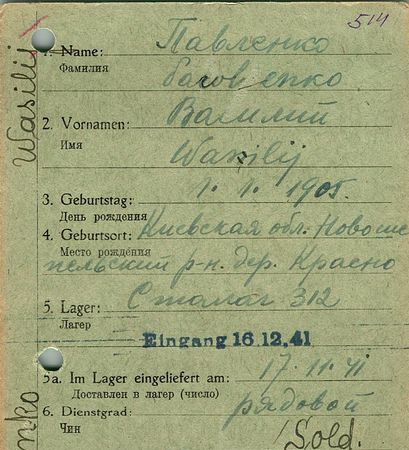 514
1. Name: Павленко
Фамилия
2. Vornamen: Василий
Имя Wasilij
3. Geburtstag: 1. 1. 1905.
День рождения
4. Geburtsort: Киевская обл. Новоше
Место рождения пельский р-н. дер. Красно
5. Lager: Сталаг 312
Лагер
Eingang 16.12.41
5a. Im Lager eingeliefert am: 17.11.41
Доставлен в лагер (число)
6. Dienstgrad: рядовой
Чин Sold.
Wasilij
nko